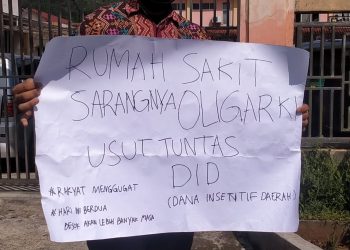 RUMAH SAKIT
SARANGNYA OLIGARKI
USUT TUNTAS
DID
(DANA INSENTIF DAERAH)
#RAKYAT MENGGUGAT
#HARI INI BERDUA
BESOK AKAN LEBIH BANYAK MASA